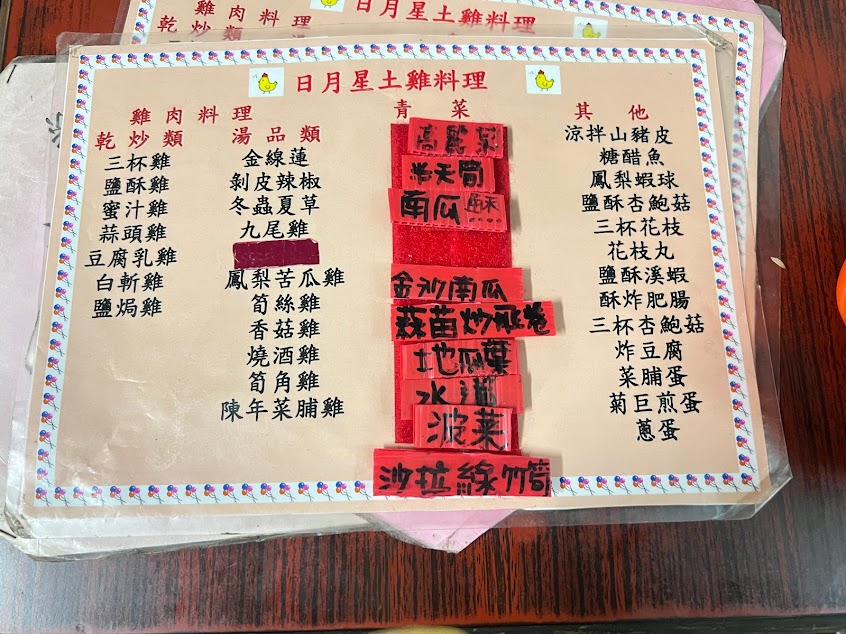 雞肉料理
日月星土雞料理
乾炒類
日月星土雞料理
雞肉料理
乾炒類
三杯雞
鹽酥雞
蜜汁雞
蒜頭雞
豆腐乳雞
白斬雞
鹽焗雞
湯品類
金線蓮
剝皮辣椒
冬蟲夏草
九尾雞
鳳梨苦瓜雞
筍絲雞
香菇雞
燒酒雞
筍角雞
陳年菜脯雞
青菜
高麗菜
滿天筍
南瓜酥
金沙南瓜
蒜苗炒
地瓜葉
水蓮
波菜
沙拉綠竹筍
其他
涼拌山豬皮
糖醋魚
鳳梨蝦球
鹽酥杏鮑菇
三杯花枝
花枝丸
鹽酥溪蝦
酥炸肥腸
三杯杏鮑菇
炸豆腐
菜脯蛋
菊巨煎蛋
蔥蛋